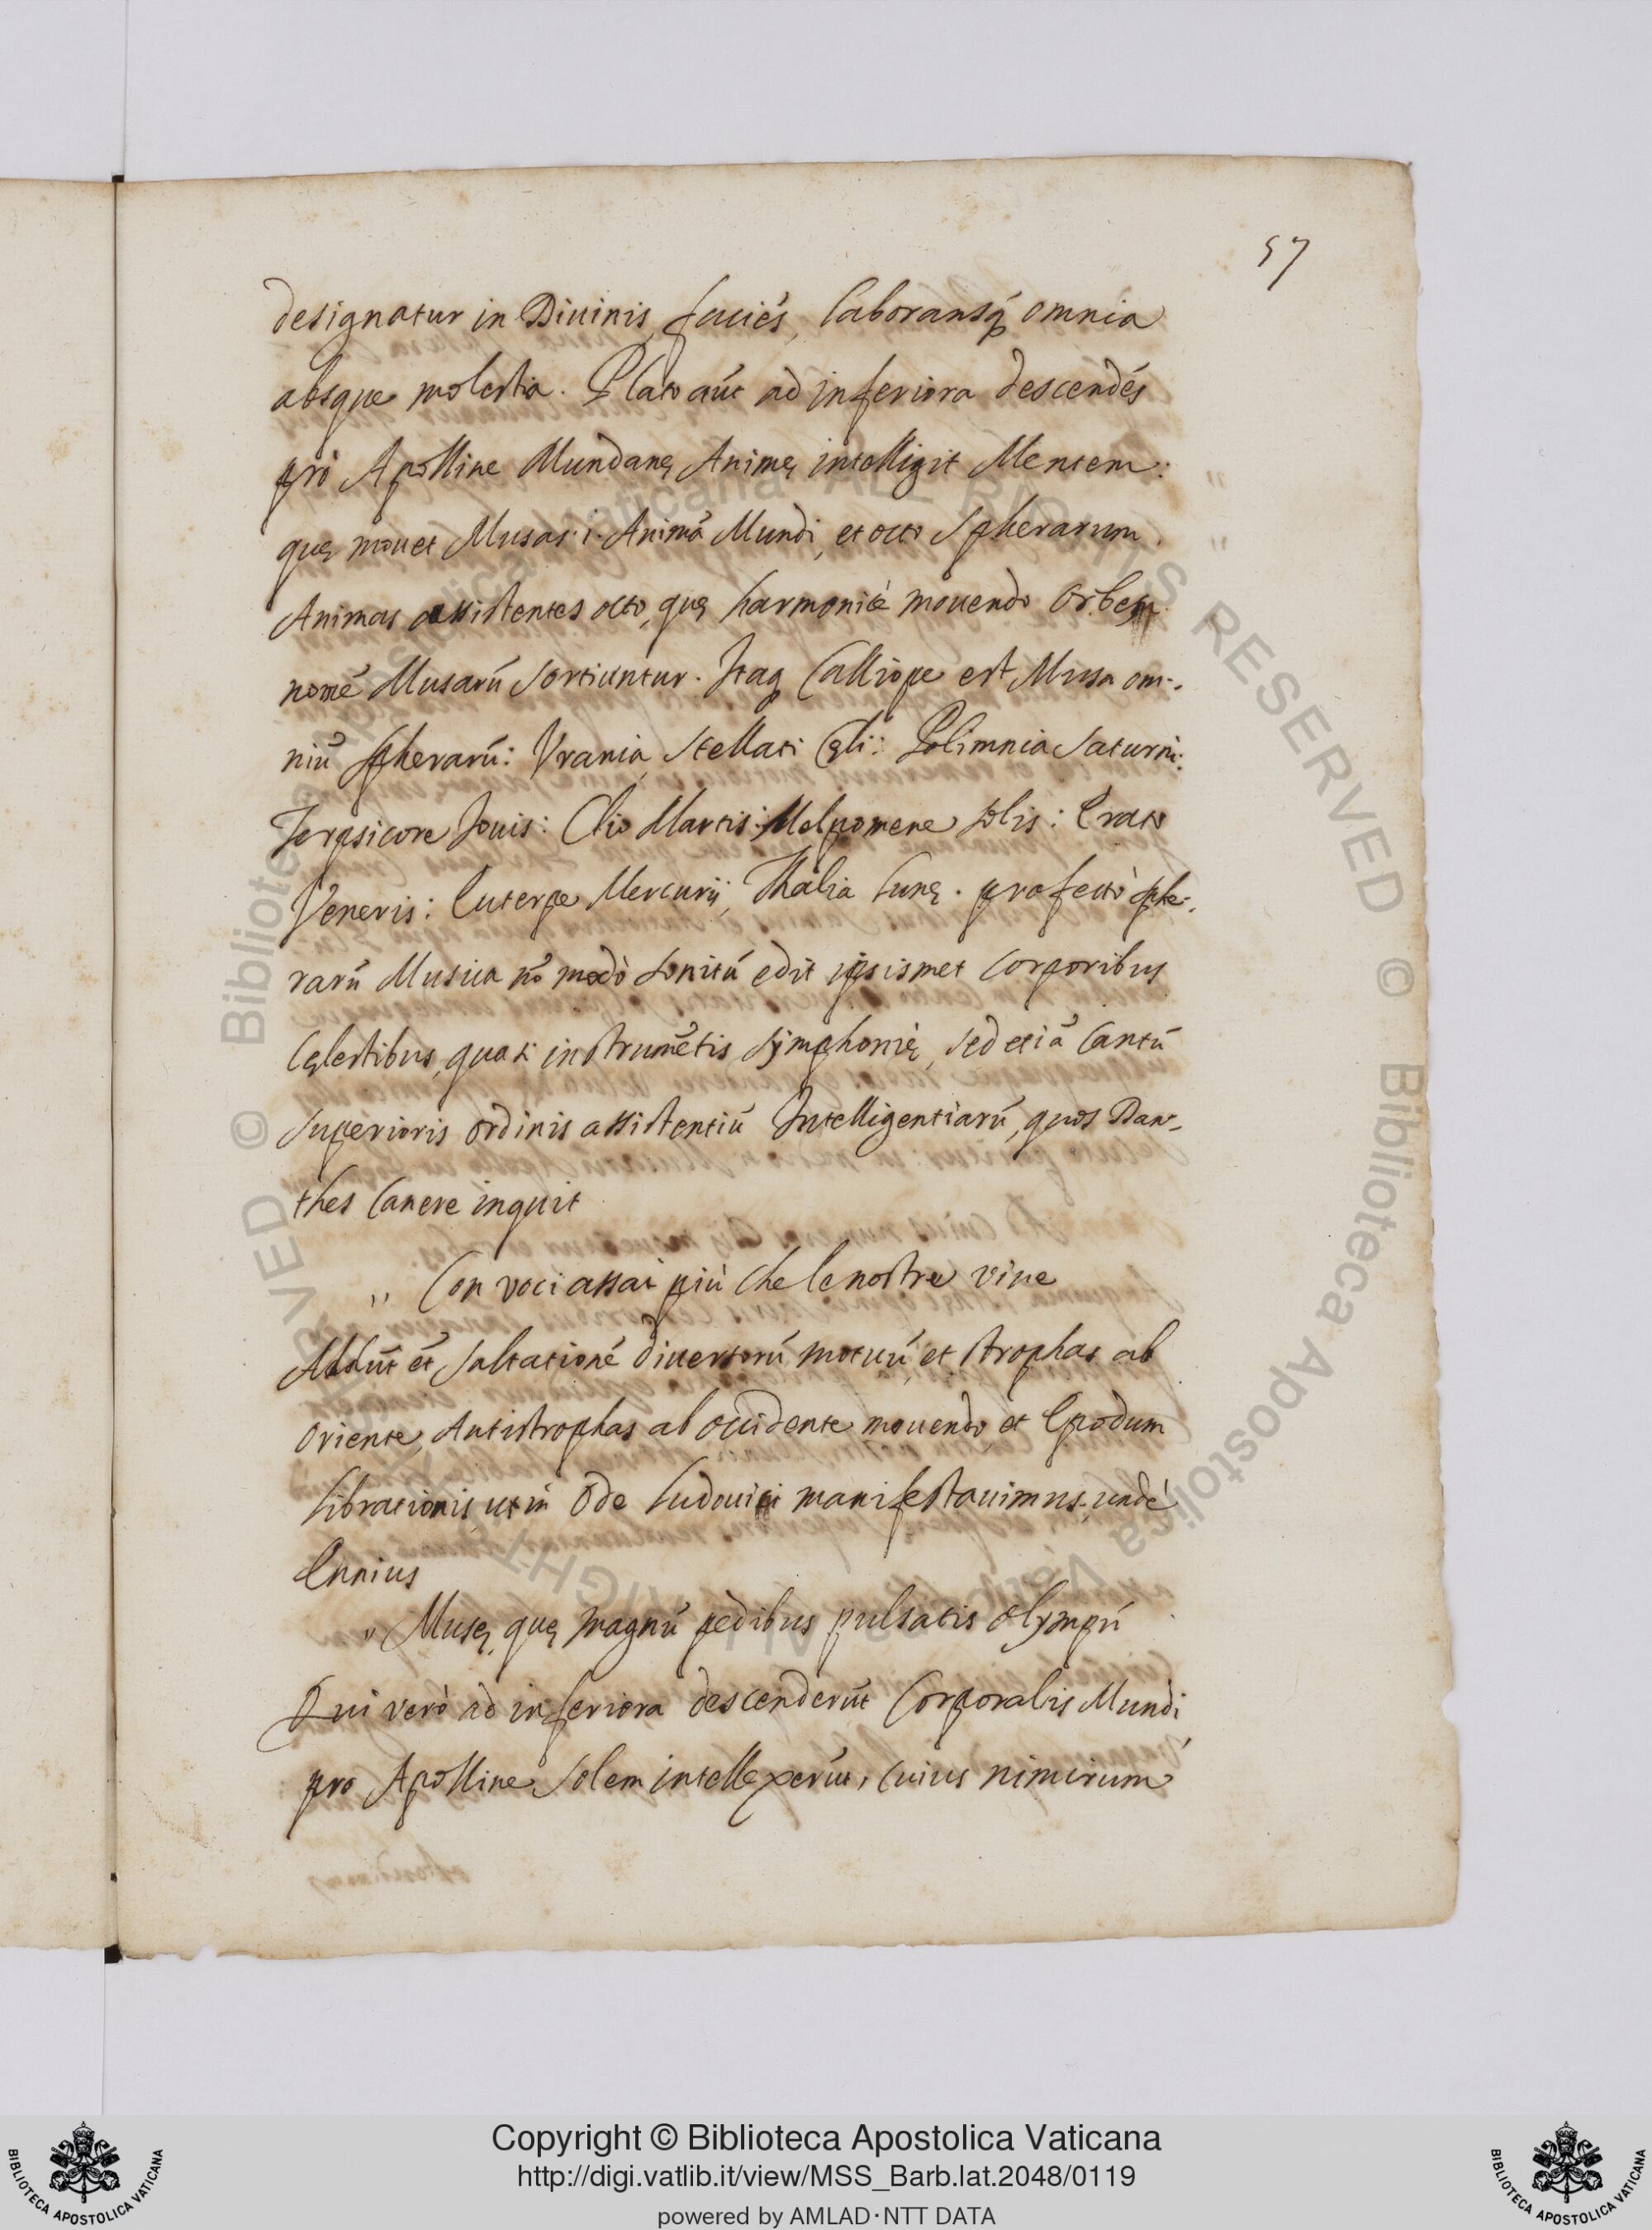 57
designatur in Diuinis, faciẽs, laboransq́ omnia
absque molestia. Plato aũt ad inferiora descendẽs
prò Apolline Mundanę Animę intelligit Mentem:
quę mouet Musas .i. Animã Mundi, et octo Spherarum
Animas assistentes octo, quę harmonicè mouendo Orbem
nomẽ Musarũ sortiuntur. Itaq Calliope est Musa om-
niũ spherarũ: Vrania Stellati Cęli: Polimnia Saturni:
Terpsicore Iouis: Clio Martis: Melpomene Solis: Erato
Veneris: Euterpe Mercurij, Thalia Lunę. profectò sphe-
rarũ Musica nõ modò sonitũ edit ipsismet Corporibus
Cęlestibus, quasi instrumẽtis symphonię, sed etiã Cantũ
superioris ordinis assistentiũ Intelligentiarũ, quos Dan-
thes Canere inquit
,, Con voci assai più che le nostre viue
Addũt ẽt saltationẽ diuersorũ motuũ, et strophas ab
Oriente, Antistrophas ab occidente mouendo et Epodum
librationis, ut in Ode Ludouici manifestauimus, undè
Ennius
,, Musę, quę magnũ pedibus pulsatis olympũ
Qui verò ad inferiora descenderũt Corporalis Mundi
pro Apolline Solem intellexerũt, cuius nimirum
Copyright © Biblioteca Apostolica Vaticana
http://digi.vatlib.it/view/MSS_Barb.lat.2048/0119
powered by AMLAD·NTT DATA
BIBLIOTECA APOSTOLICA VATICANA
BIBLIOTECA APOSTOLICA VATICANA